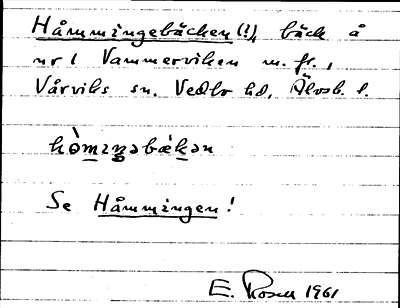 Håmmingebäcken (!), bäck å
nr 1 Vammerviken m. fl.,
Vårviks sn. Vedbo hd, Älvsb. l.
hòmıŋəbäkən
Se Håmmingen!
E. Rosell 1961